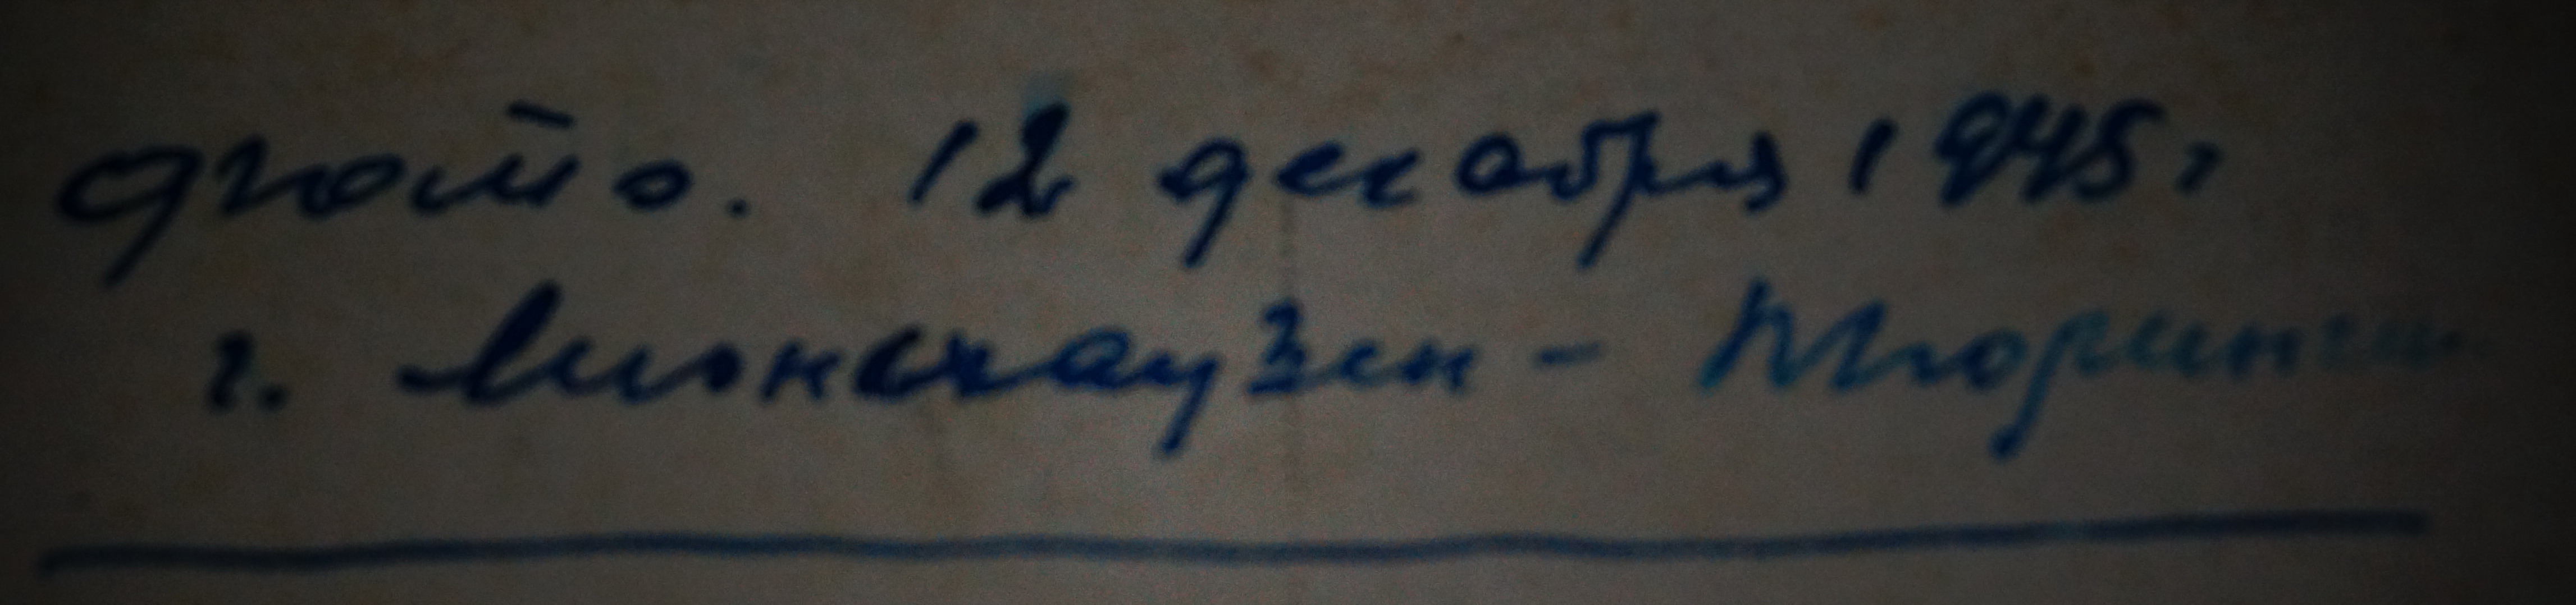 фото. 12 декабря 1945г
г. Мюнхгаузен - Тюрингия